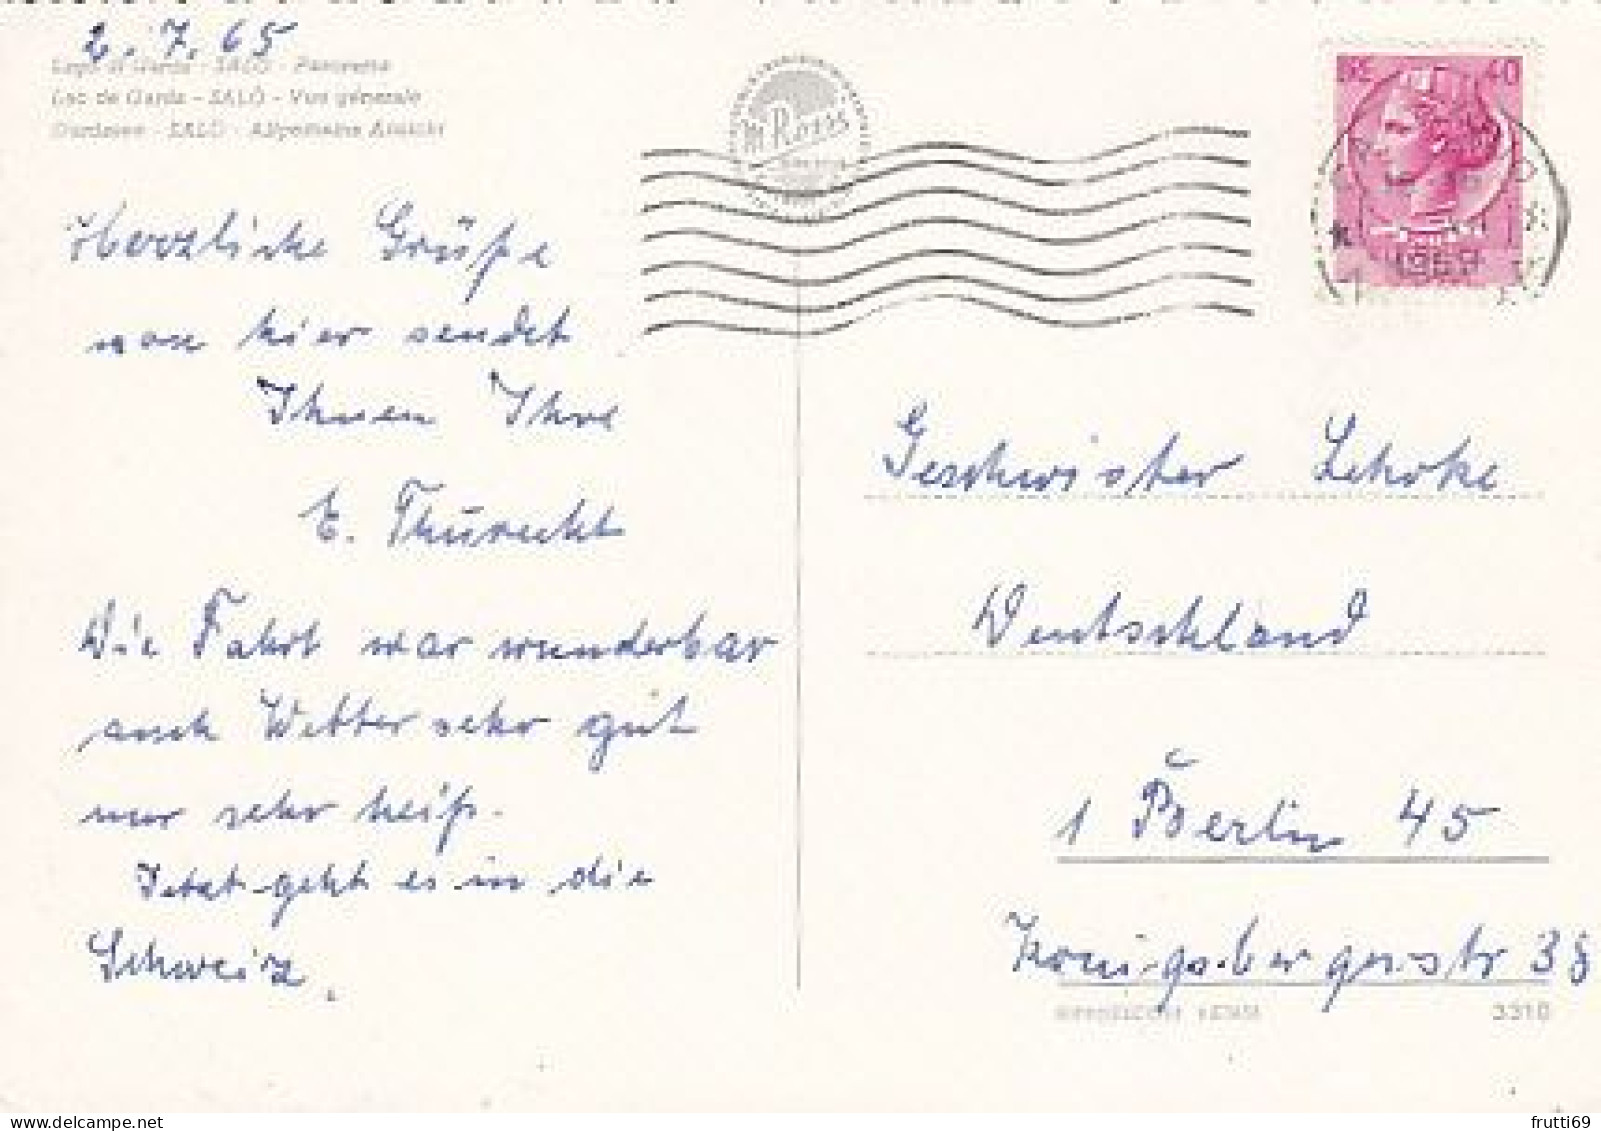 2.7.65
Lago di Garda - SALÒ - Panorama
Lac de Garda - SALÒ - Vue générale
Gardasee - SALÒ - Allgemeine Ansicht
Rotis
40
Herzliche Grüße
von hier sendet
Ihnen Ihre
E. Thürecht
Die Fahrt war wunderbar
auch Wetter sehr gut
nur sehr heiß.
Jetzt geht es in die
Schweiz.
Geschwister
Deutschland
1 Berlin 45
Königsbergerstr 38
3310
frutti69